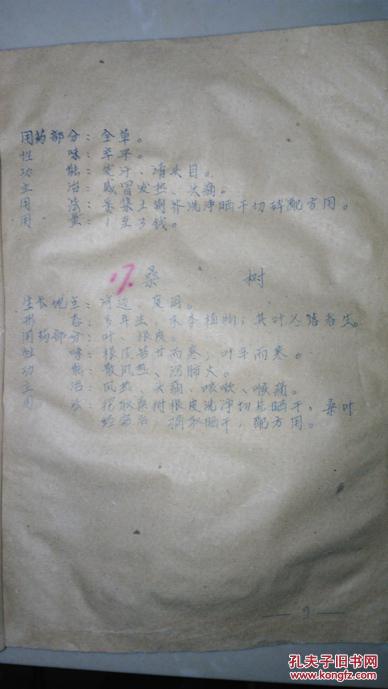 用药部分：全草。
性　　味：辛平。
功　　能：发汗、清头目。
主　　治：感冒发热、头痛。
用　　法：采集土荆芥洗净晒干切碎配方用。
用　　量：1至3钱。
17. 桑　　树
生长地点：河边、田园。
形　　态：多年生，木本植物；其叶
用药部分：叶、根皮。
性　　味：根皮苦甘而寒；叶辛而寒。
功　　能：散风热、泻肺火。
主　　治：风热、头痛、咳嗽、喉痛。
用　　法：挖取桑树根皮洗净切片晒干，桑叶
经霜后，摘取晒干，配方用。
—9—
孔夫子旧书网
www.kongfz.com